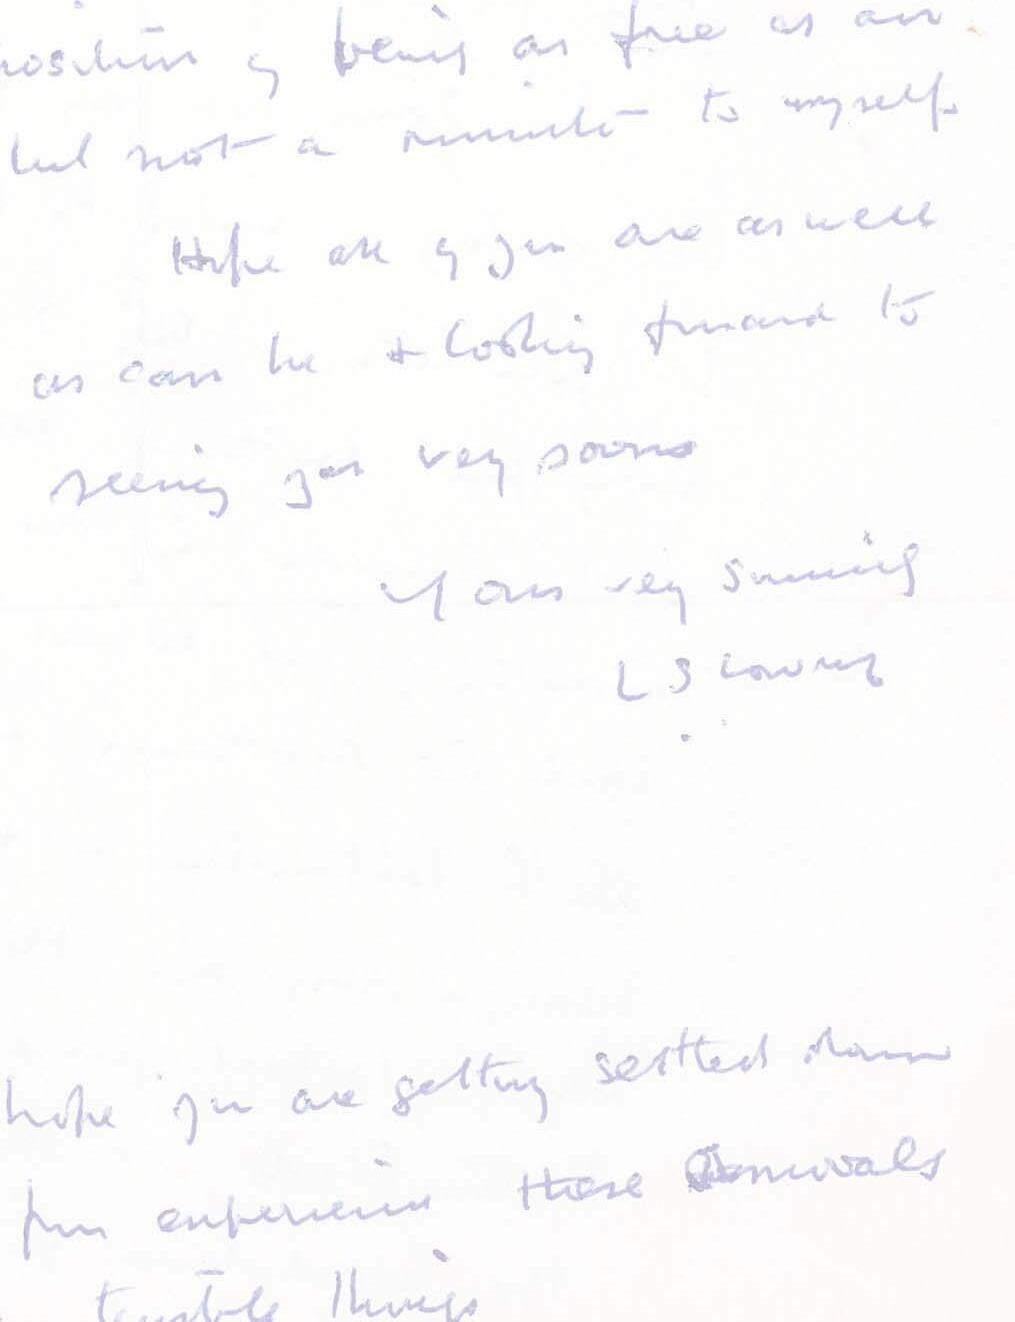 position of being as free as air
but not a minute to myself.
Hope all of you are as well
as can be + looking forward to
seeing you very soon
Yours very sincerely
L S Lowry
hope you are getting settled down
from experience these removals
terrible things